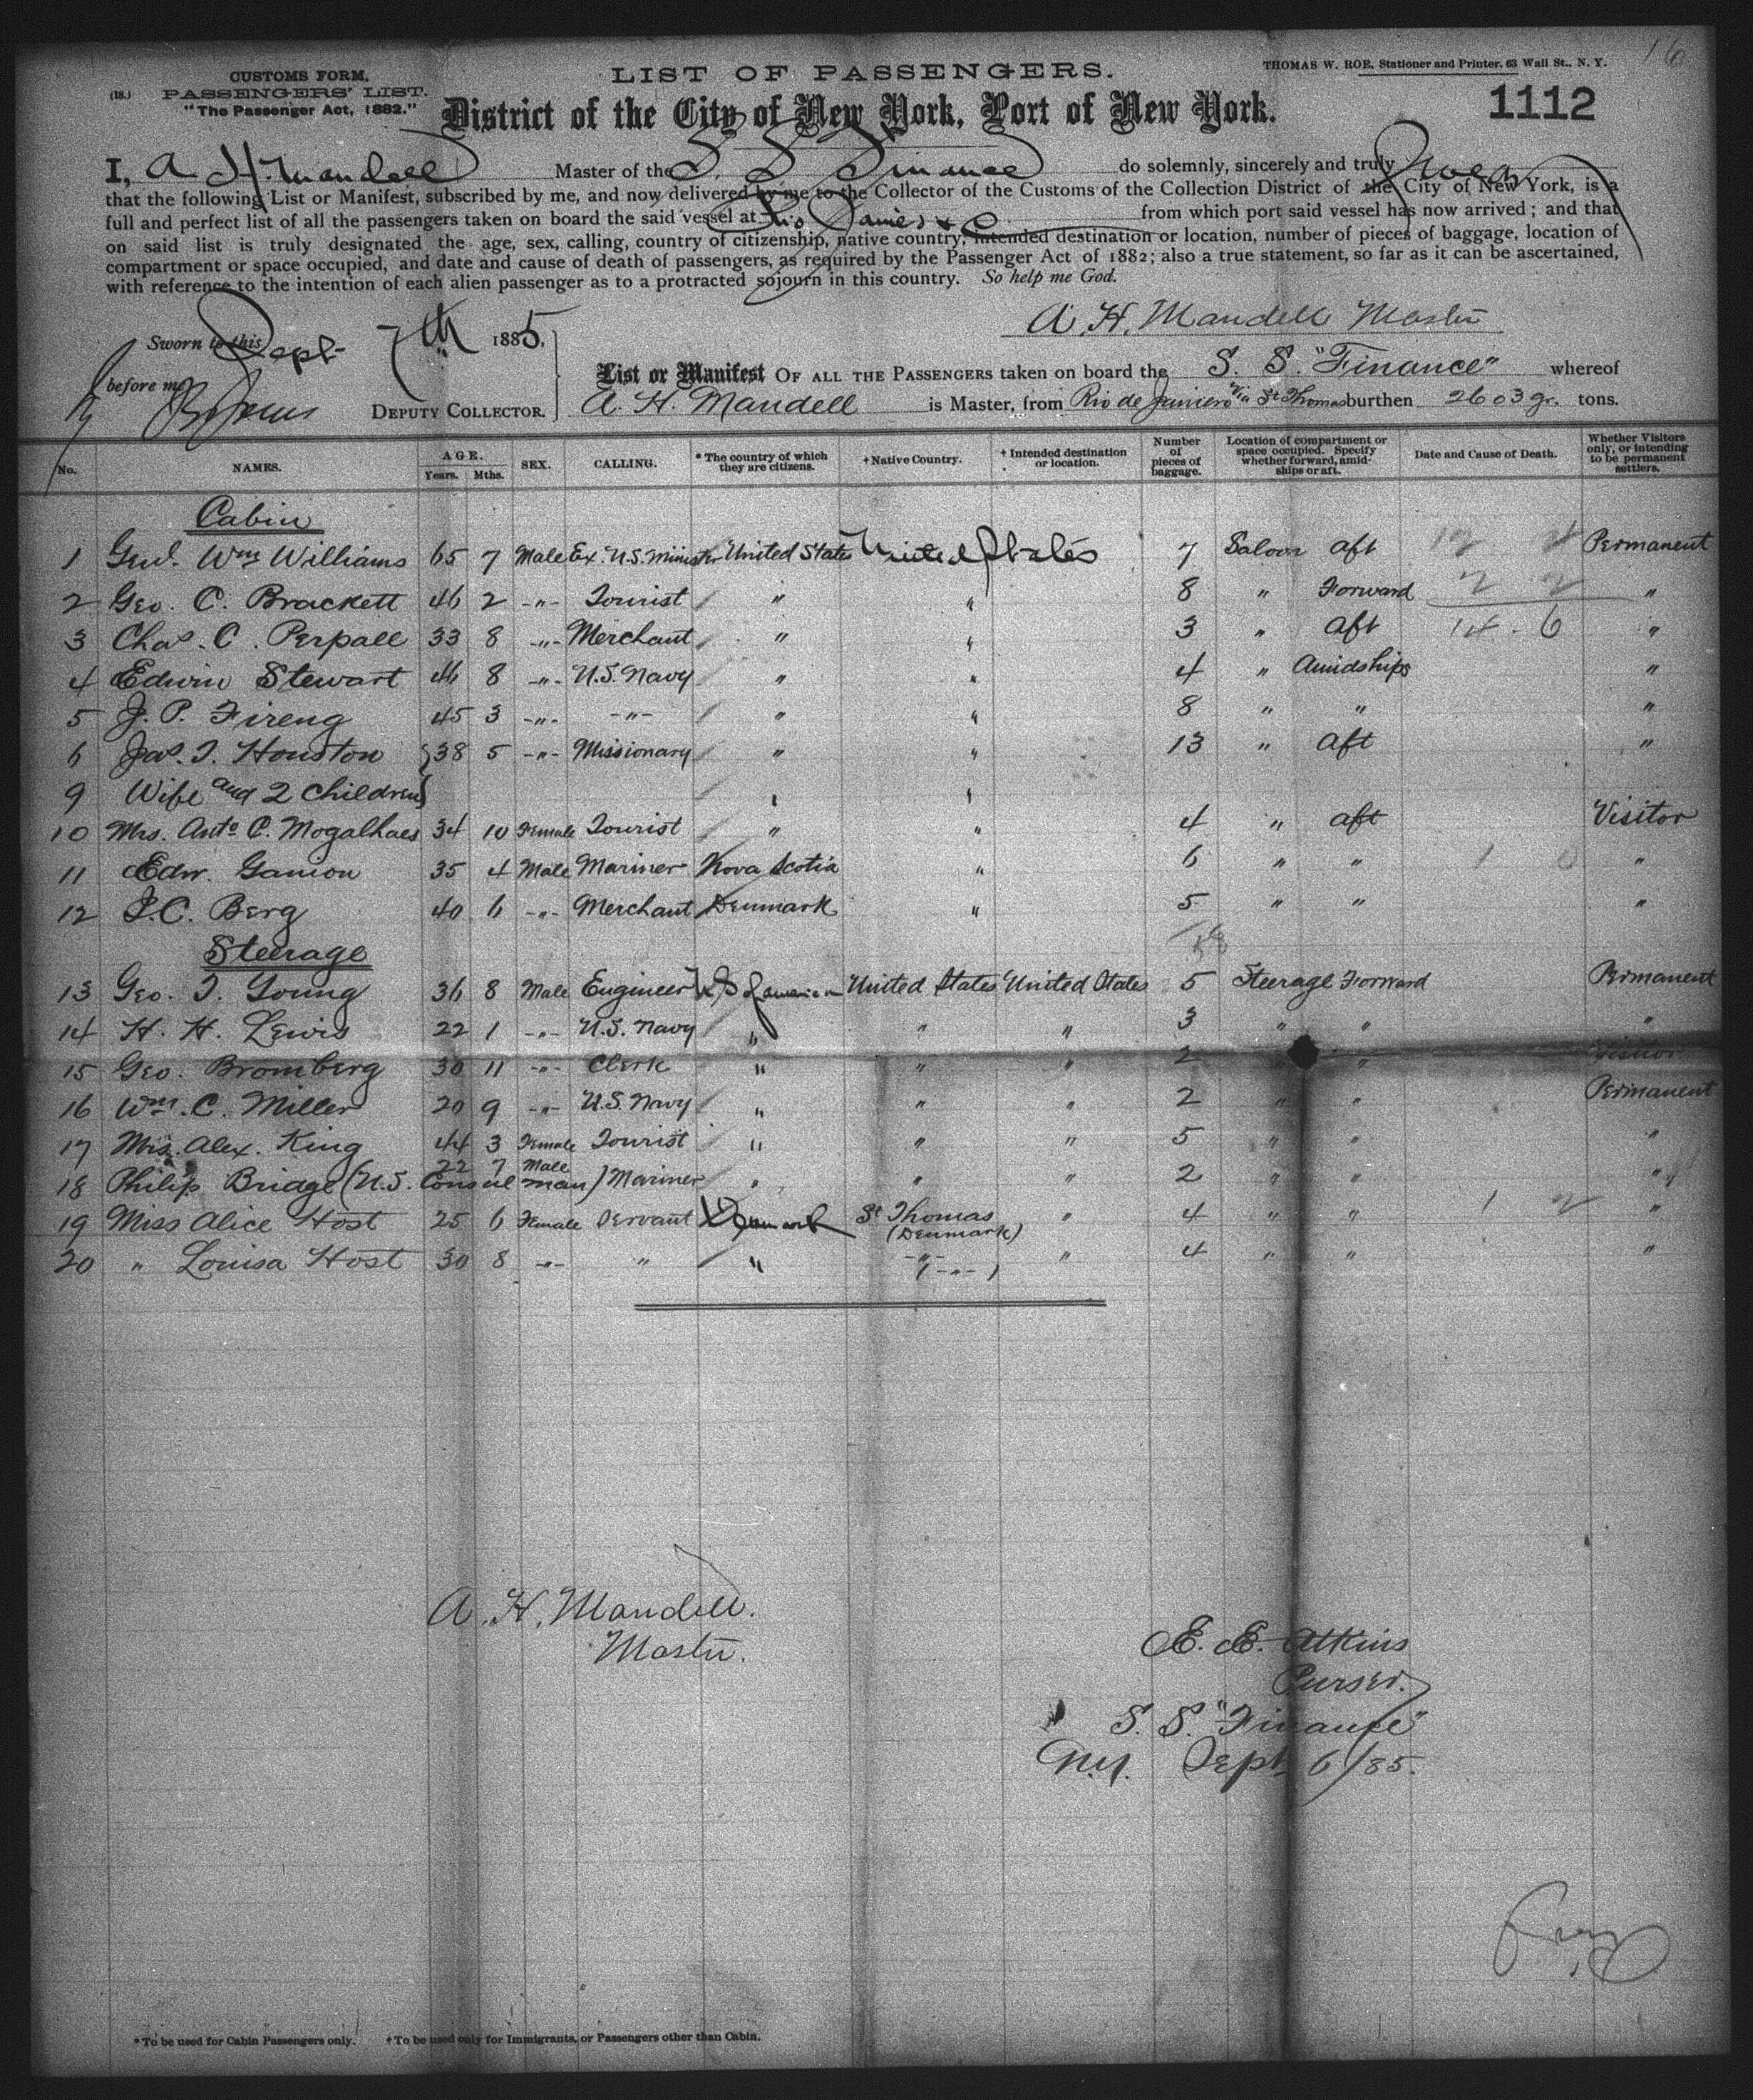 16
CUSTOMS FORM.
(18.) PASSENGERS' LIST.
"The Passenger Act, 1882."
LIST OF PASSENGERS.
THOMAS W. ROE, Stationer and Printer, 63 Wall St., N. Y.
District of the City of New York, Port of New York.
1112
I, A H. Mandell Master of the S. S Finance do solemnly, sincerely and truly swear
that the following List or Manifest, subscribed by me, and now delivered by me to the Collector of the Customs of the Collection District of the City of New York, is a
full and perfect list of all the passengers taken on board the said vessel at Rio Janiero & C from which port said vessel has now arrived; and that
on said list is truly designated the age, sex, calling, country of citizenship, native country, intended destination or location, number of pieces of baggage, location of
compartment or space occupied, and date and cause of death of passengers, as required by the Passenger Act of 1882; also a true statement, so far as it can be ascertained,
with reference to the intention of each alien passenger as to a protracted sojourn in this country. So help me God.
A. H. Mandell Master
Sworn to this Sept 7th 1885,
before me
DEPUTY COLLECTOR.
List or Manifest OF ALL THE PASSENGERS taken on board the S. S. "Finance" whereof
A. H. Mandell is Master, from Rio de Janiero Via St Thomas burthen 2603 gr. tons.
No. NAMES. AGE. Years. Mths. SEX. CALLING. * The country of which they are citizens. † Native Country. † Intended destination or location. Number of pieces of baggage. Location of compartment or space occupied. Specify whether forward, amidships or aft. Date and Cause of Death. Whether Visitors only, or intending to be permanent settlers.
Cabin
1 Genl. Wm Williams 65 7 Male Ex. U.S. Minister United States United States 7 Saloon aft Permanent
2 Geo. C. Brackett 46 2 -"- Tourist " " 8 " Forward 2 2 "
3 Chas. C. Perpall 33 8 -"- Merchant " " 3 " aft 14 - 6 "
4 Edwin Stewart 46 8 -"- U.S. Navy " " 4 " Amidships "
5 J. P. Fireng 45 3 -"- -"- " " 8 " " "
6 Jas. T. Houston 38 5 -"- Missionary " " 13 " aft "
9 Wife and 2 children " "
10 Mrs. Anto C. Mogalhaes 34 10 Female Tourist " " 4 " aft Visitor
11 Edw. Ganion 35 4 Male Mariner Nova Scotia " 6 " " 1 0 "
12 J.C. Berg 40 6 -"- Merchant Denmark " 5 " " "
Steerage
13 Geo. T. Young 36 8 Male Engineer U S of america United States United States 5 Steerage Forward Permanent
14 H. H. Lewis 22 1 -"- U.S. Navy " " " 3 " " "
15 Geo. Bromberg 30 11 -"- Clerk " " " 2 " Visitor
16 Wm. C. Miller 20 9 -"- U.S. Navy " " " 2 " " Permanent
17 Mrs. Alex. King 44 3 Female Tourist " " " 5 " " "
18 Philip Bridge (U.S. Consul man) 22 7 Male Mariner " " " 2 " " "
19 Miss Alice Host 25 6 Female Servant Denmark St Thomas (Denmark) " 4 " " 1 2 "
20 " Louisa Host 30 8 -"- " " -"- (-"-) " 4 " " "
A. H. Mandell.
Master.
E. E. Atkins
Purser.
S. S. "Finance"
N.Y. Sept 6/85.
* To be used for Cabin Passengers only. † To be used only for Immigrants, or Passengers other than Cabin.